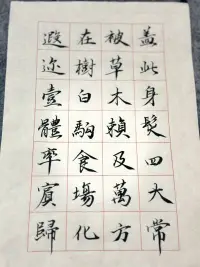 遐迩壹體率賓歸
在樹白駒食場化
被草木賴及萬方
盖此身髮四大常